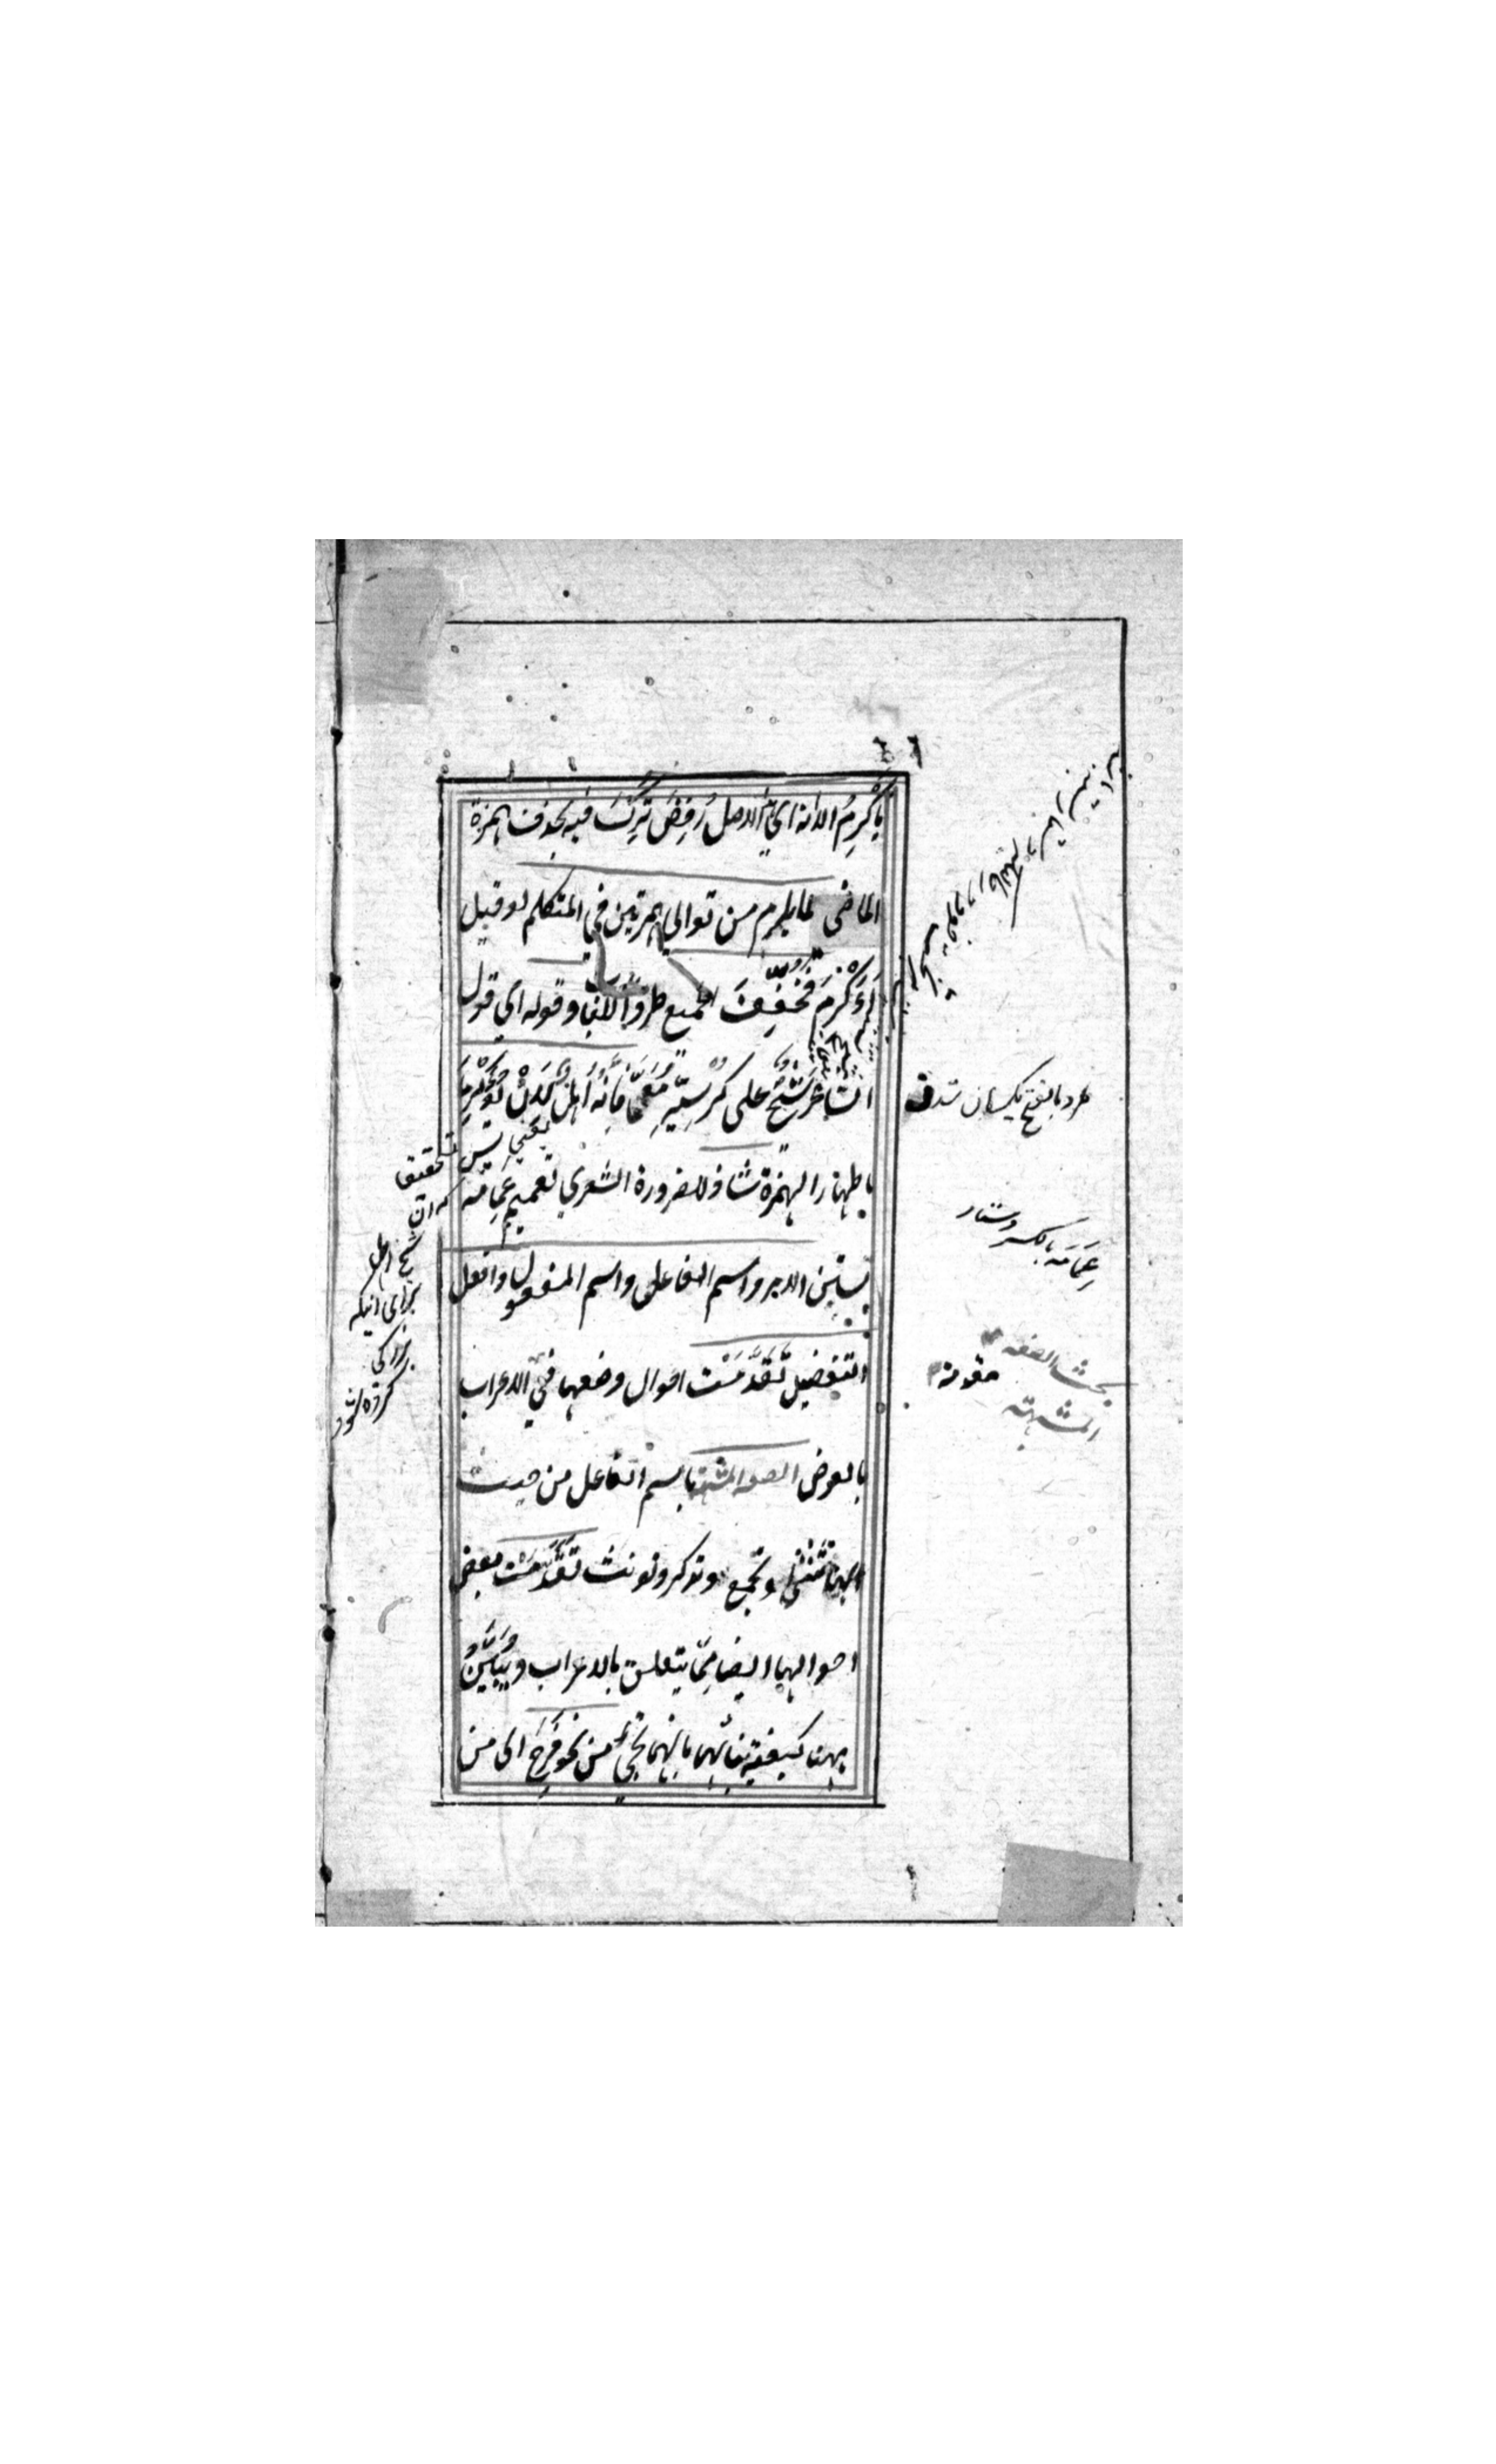 يأكرم الا انه اي الاصل رفض تركت فيه بحذف همزة
الماضى لما يلزم من توالي همزتين في المتكلم لو قيل
أءكرم فخفف الجميع طردا للباب وقوله اي قول
الشاعر شيخ على كرسيه معمما فانه اهل لان يؤكرما
باظهار الهمزة شاذ لضرورة الشعري تعميم عمامه
بستن الامر واسم الفاعل واسم المفعول وافعل
التفضيل تقدمت احوال وضعهما في الاعراب
بالعرض الصفة المشبهة باسم الفاعل من حيث
انها تثنى وتجمع وتذكر وتونث تقدمت بعض
احوالهما ايضا مما يتعلق بالاعراب ويبين
ههنا كيفية بنائهما بانهما تجيء من نحو فرح اى من
طرد بالفتح يكسان شدن
عمامه بالكسر دستار
بحث الصفة
المشبهة
يعني
تحقيقا
كه ان
شيخ اهل
براي انيكه
بزركي
كرده شود